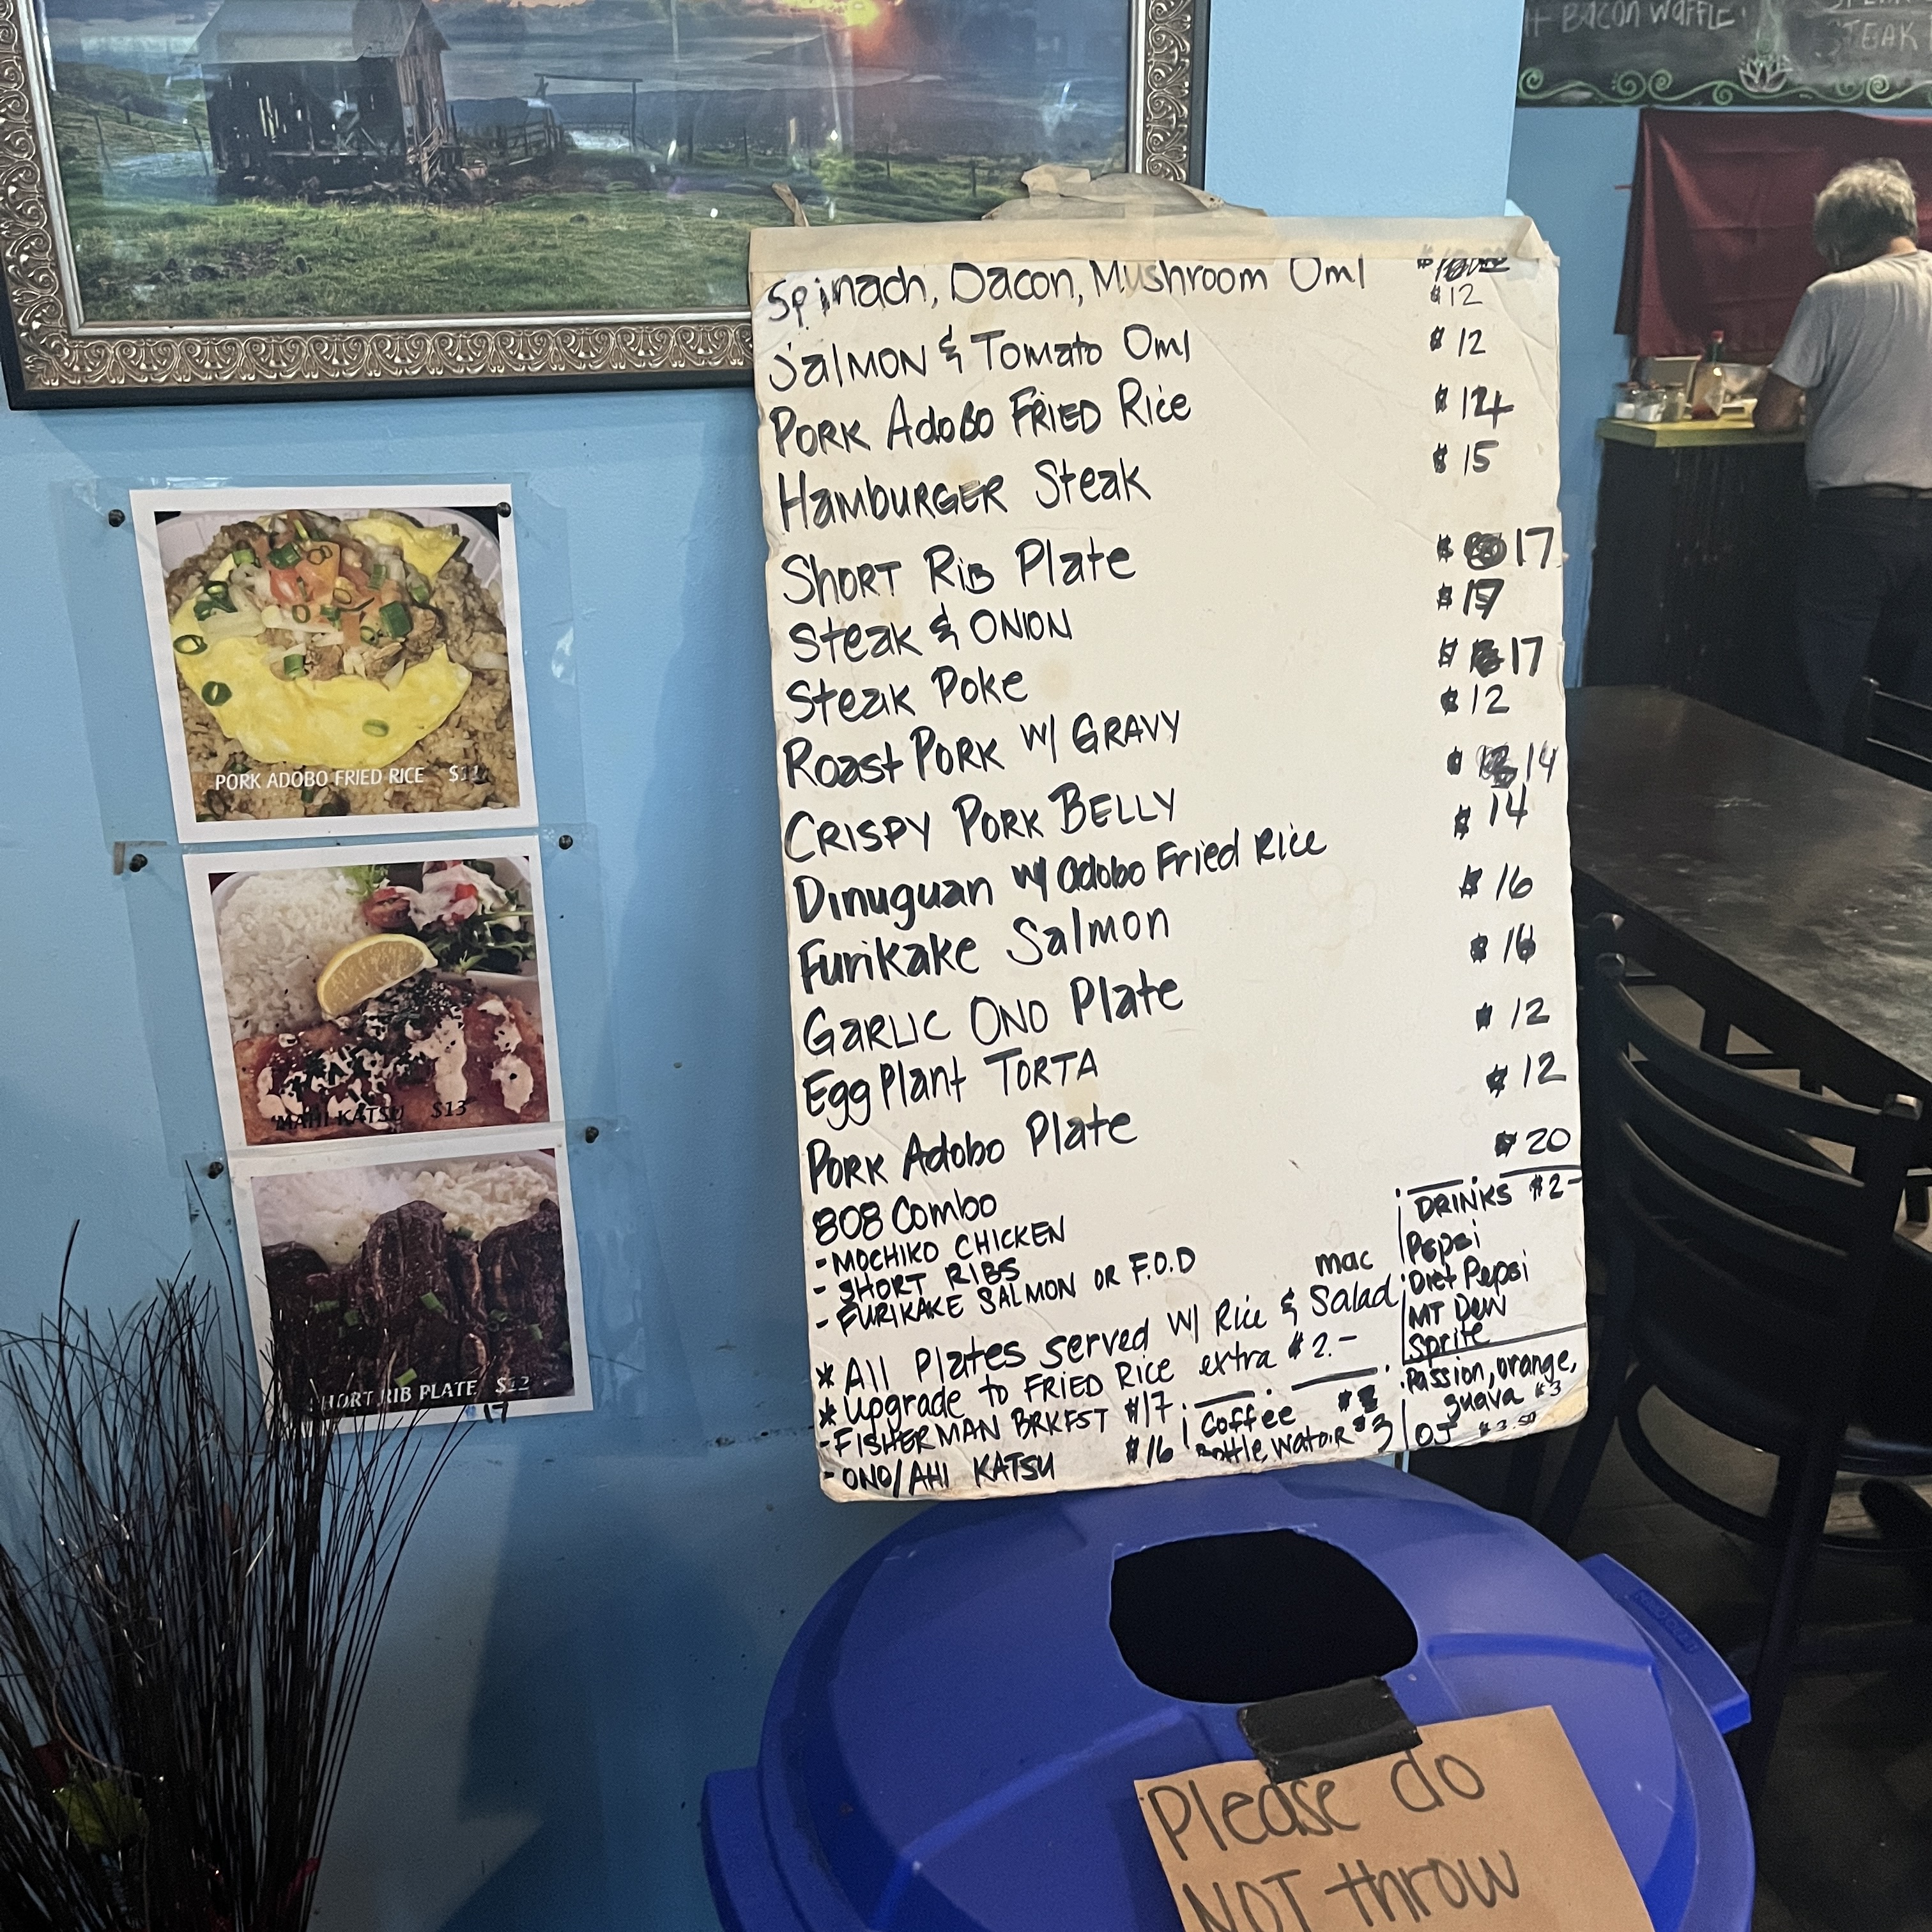 BACON WAFFLE
STEAK
Spinach, Bacon, Mushroom Oml $12
Salmon & Tomato Oml $12
Pork Adobo Fried Rice $14
Hamburger Steak $15
Short Rib Plate $17
Steak & Onion $17
Steak Poke $17
Roast Pork w/ Gravy $12
Crispy Pork Belly $14
Dinuguan w/ Adobo Fried Rice $14
Furikake Salmon $16
Garlic Ono Plate $16
Egg Plant Torta $12
Pork Adobo Plate $12
808 Combo $20
- MOCHIKO CHICKEN
- SHORT RIBS
- FURIKAKE SALMON OR F.O.D
* All Plates served w/ Rice & mac Salad
* Upgrade to FRIED Rice extra $2.-
- FISHERMAN BRKFST $17
- ONO/AHI KATSU $16
Coffee
Bottle Water $3
DRINKS $2-
Pepsi
Diet Pepsi
MT Dew
Sprite
Passion, orange,
guava $3
OJ $3.50
PORK ADOBO FRIED RICE
MAHI KATSU $13
SHORT RIB PLATE $12
17
Please do
NOT throw